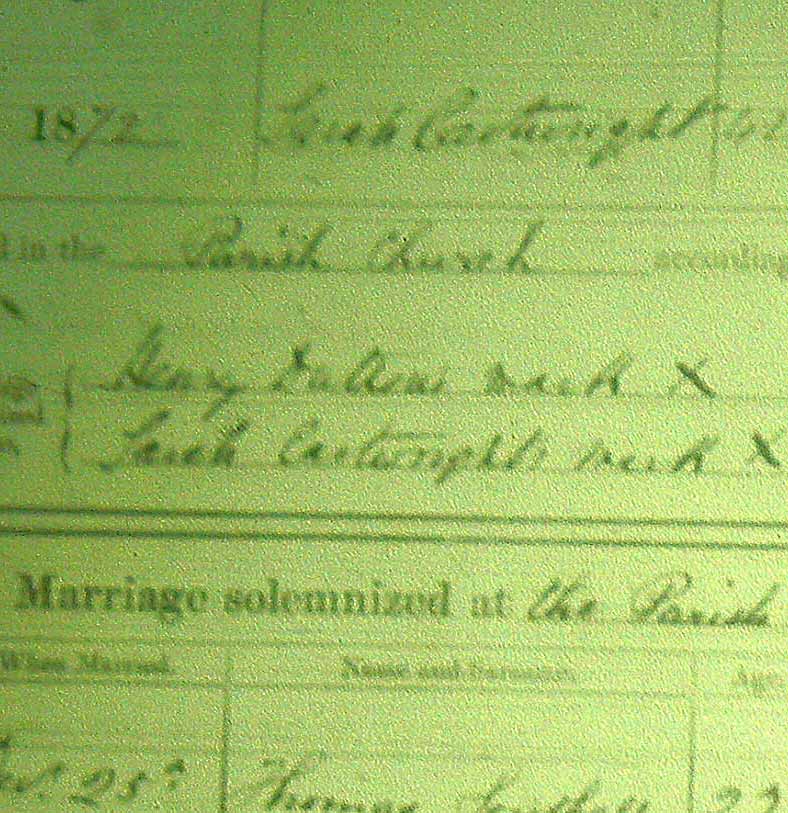 1872 Sarah Cartwright
in the Parish Church according
Henry mark X
Sarah Cartwrights mark X
Marriage solemnized at the Parish
When Married. Name and Surname. Age
25 Thomas 22